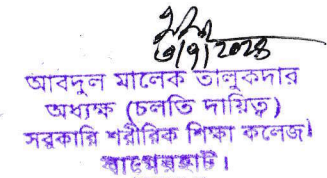 ৩/৭/২০২৪
আবদুল মালেক তালুকদার
অধ্যক্ষ (চলতি দায়িত্ব)
সরকারি শারীরিক শিক্ষা কলেজ।
বাগেরহাট।